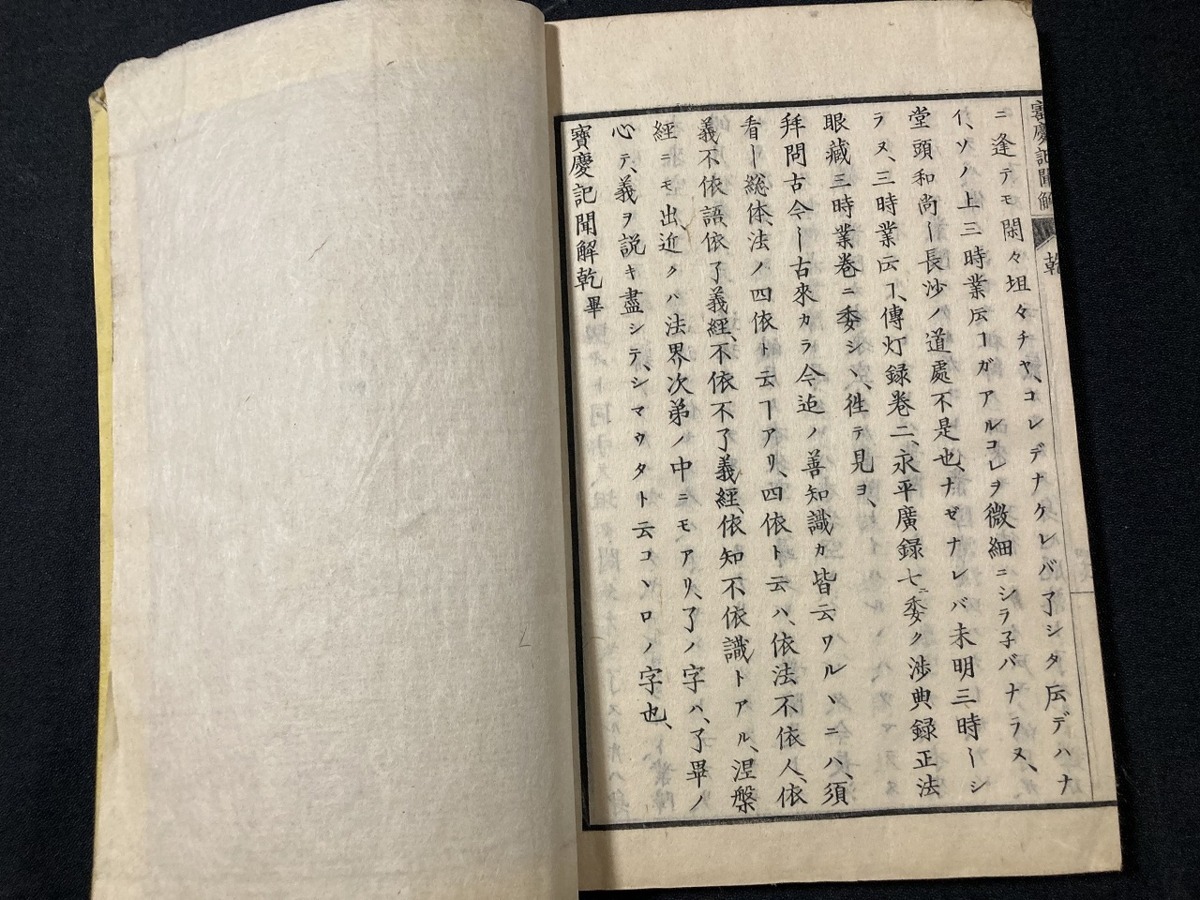 寶慶記聞解 乾
ニ逢テモ閑々坦々チヤ、コレデナケレバ了シタ㕝デハナ
イ、ソノ上三時業㕝ーガアルコレヲ微細ニシラ子バナラヌ、
堂頭和尚ー長沙ノ道處不是也、ナゼナレバ未明三時ーシ
ラヌ、三時業㕝ヿ、傳灯録卷二、永平廣録七ニ委ク渉典録正法
眼藏三時業卷ニ委シヽ、徃テ見ヨ、
拜問古今ー古來カラ今迠ノ善知識カ皆云ワルヽニハ、須
看ー総体法ノ四依ト云ヿアリ、四依ト云ハ、依法不依人、依
義不依語依了義經、不依不了義經、依知不依識トアル、涅槃
經ニモ出、近クハ法界次第ノ中ニモアリ、了ノ字ハ、了畢ノ
心テ、義ヲ説キ盡シテ、シマウタト云コヽロノ字也、
寶慶記聞解乾畢